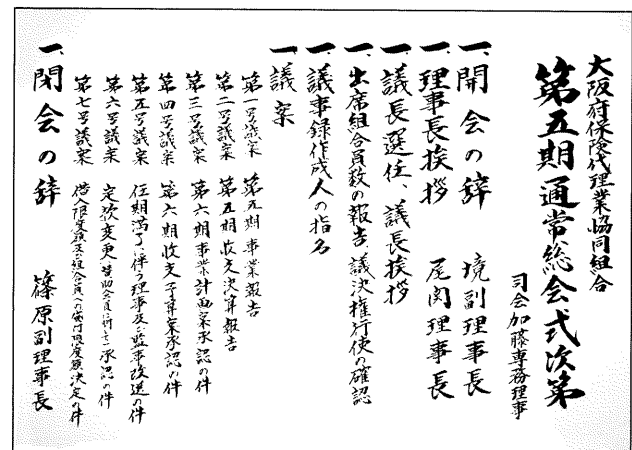 大阪府保険代理業協同組合
第五期通常総会式次第
司会加藤専務理事
一、開会の辞 境副理事長
一、理事長挨拶 尾関理事長
一、議長選任、議長挨拶
一、出席組合員数の報告、議決権行使の確認
一、議事録作成人の指名
一、議案
第一号議案 第五期事業報告
第二号議案 第五期収支決算報告
第三号議案 第六期事業計画案承認の件
第四号議案 第六期收支予算案承認の件
第五号議案 任期満了に伴う理事及び監事改選の件
第六号議案 定款変更(賛助会員に付き)承認の件
第七号議案 借入限度額及び組合員への貸付限度額決定の件
一、閉会の辞 篠原副理事長